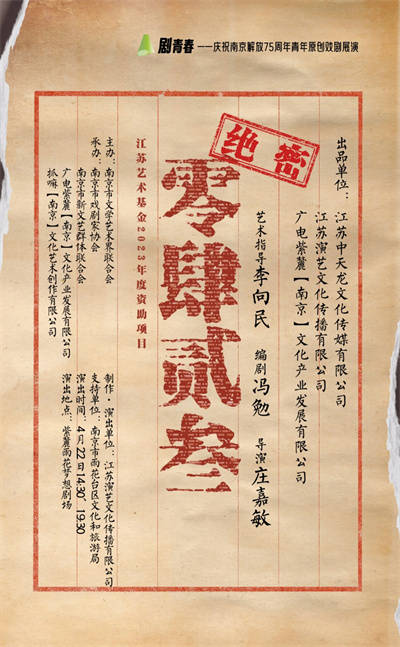 剧青春——庆祝南京解放75周年青年原创戏剧展演
绝密
出品单位：江苏中天龙文化传媒有限公司
江苏演艺文化传播有限公司
广电紫麓【南京】文化产业发展有限公司
艺术指导李向民 编剧冯勉 导演庄嘉敏
零肆贰叁
江苏艺术基金2023年度资助项目
主办：南京市文学艺术界联合会
承办：南京市戏剧家协会
南京市新文艺群体联合会
广电紫麓【南京】文化产业发展有限公司
抓嘛【南京】文化艺术创作有限公司
制作·演出单位：江苏演艺文化传播有限公司
支持单位：南京市雨花台区文化和旅游局
演出时间：4月22日14:30、19:30
演出地点：紫麓雨花梦想剧场